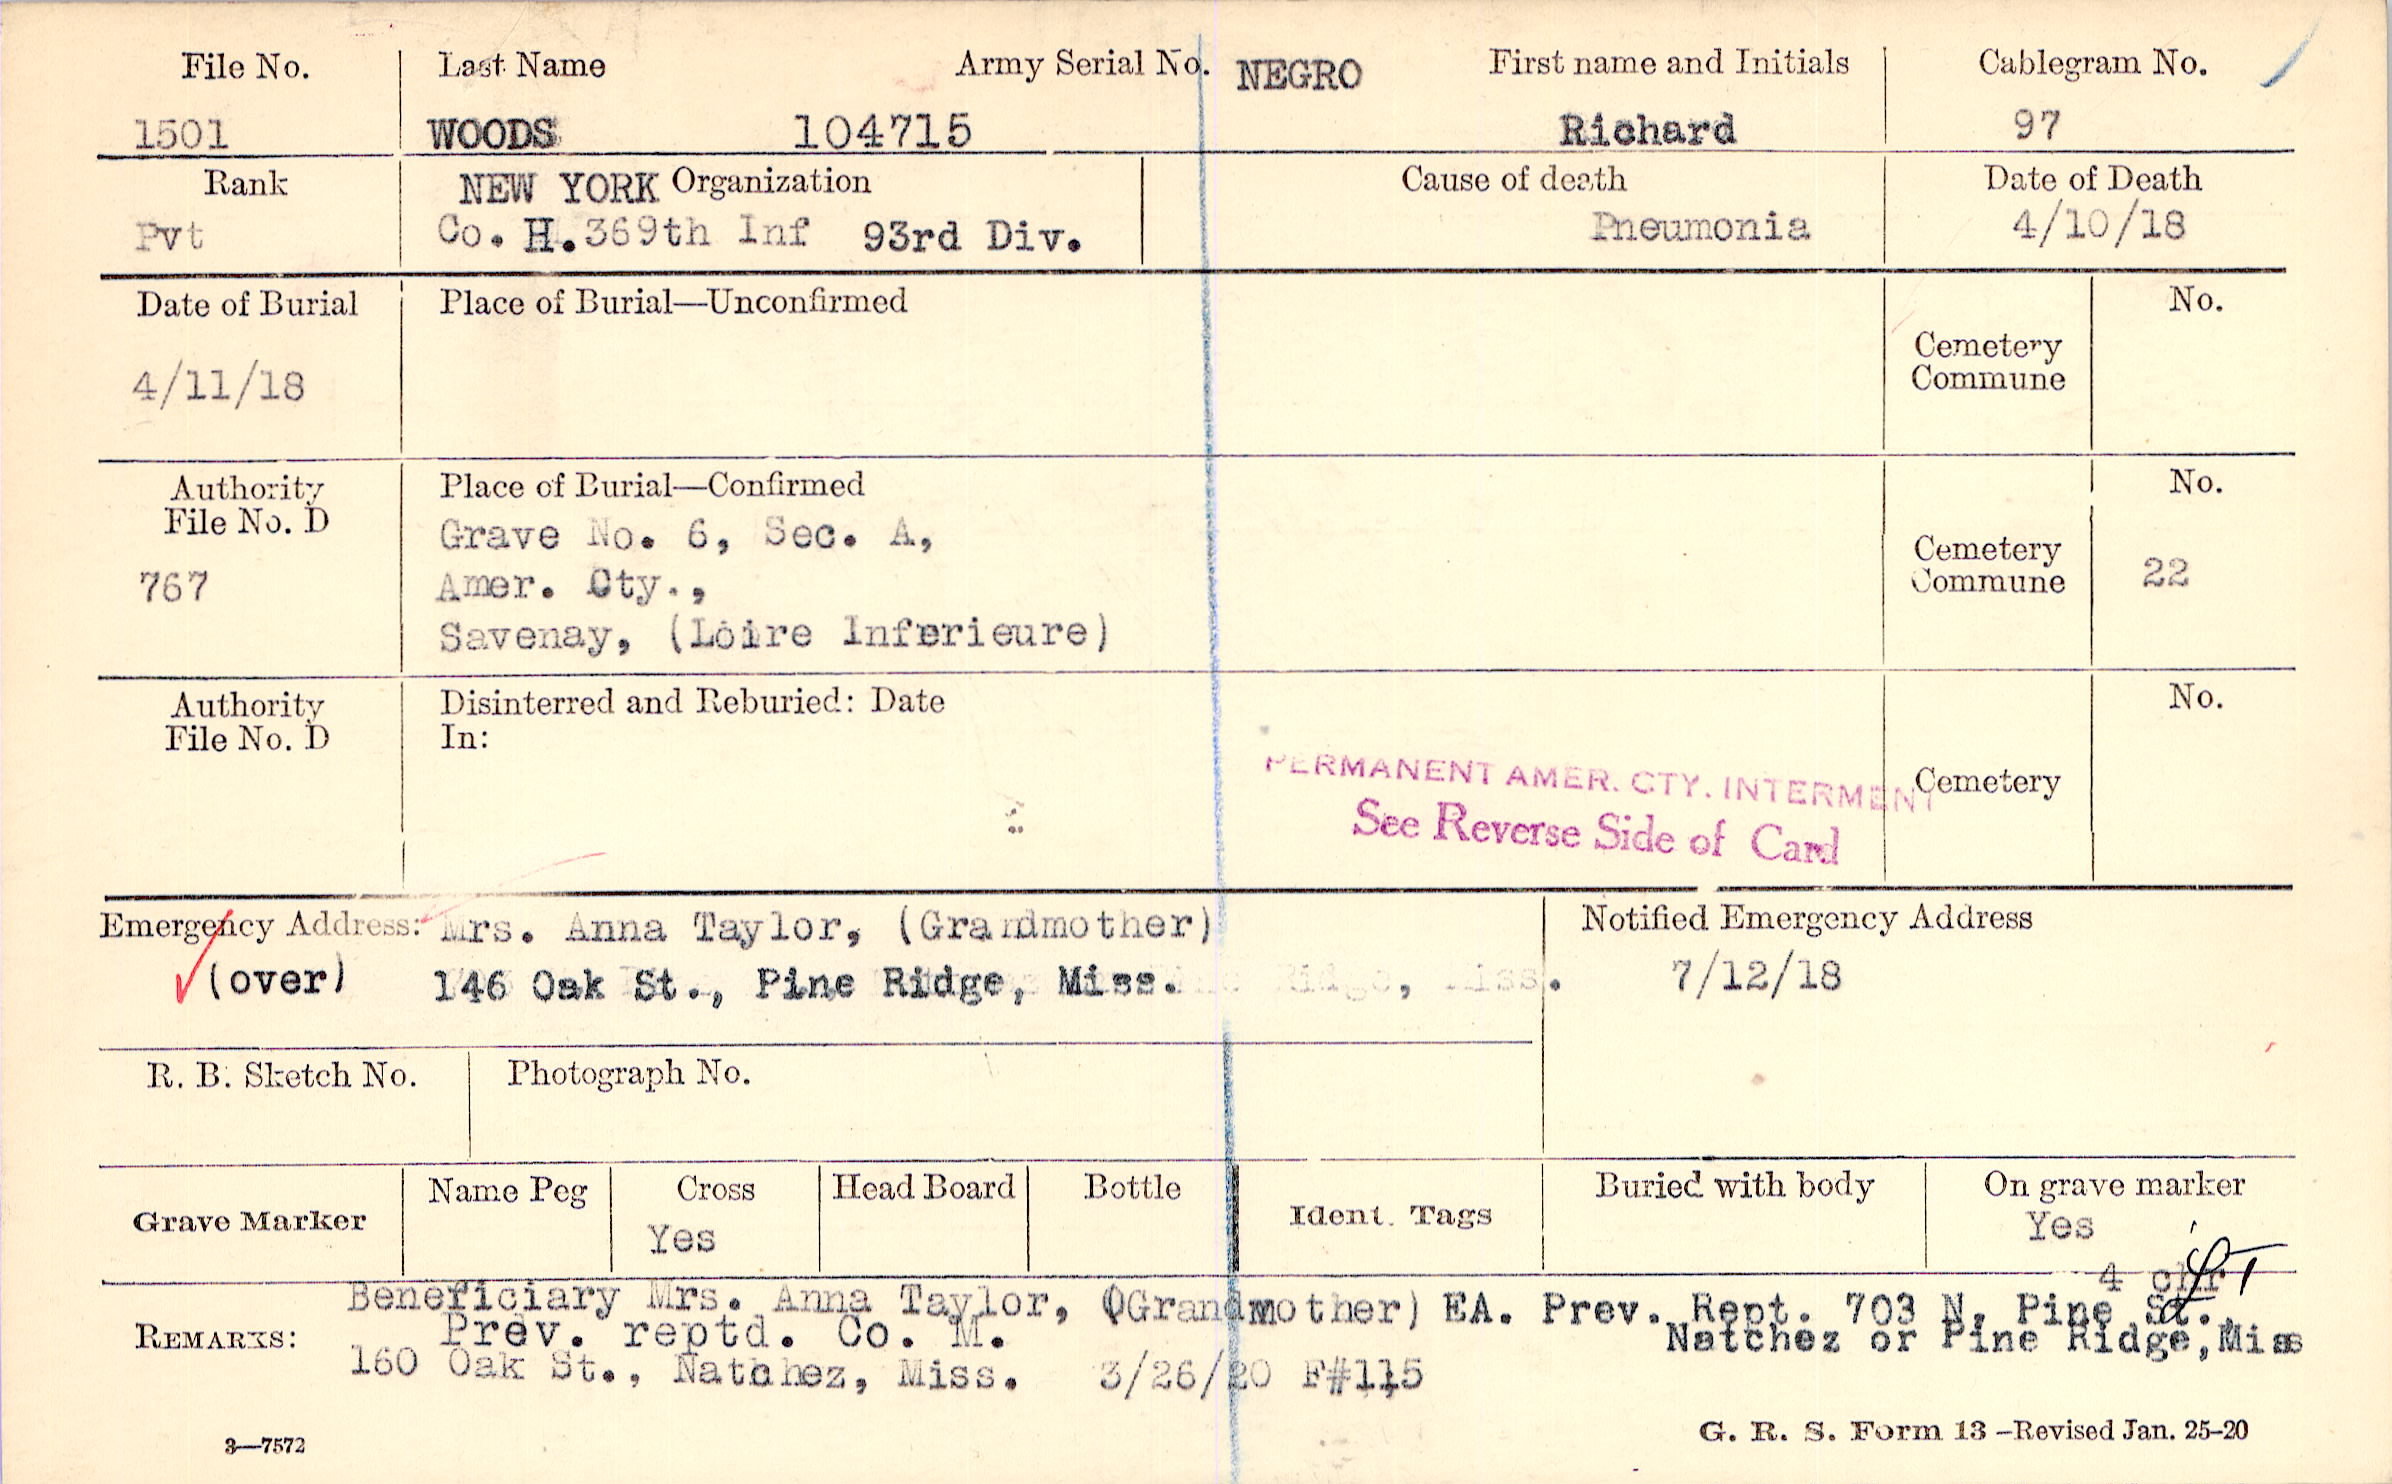 File No. Last Name Army Serial No. NEGRO First name and Initials Cablegram No.
1501 WOODS 104715 Richard 97
Rank NEW YORK Organization Cause of death Date of Death
Pvt Co. H. 369th Inf 93rd Div. Pneumonia 4/10/18
Date of Burial Place of Burial—Unconfirmed No.
Cemetery
Commune
4/11/18
Authority Place of Burial—Confirmed No.
File No. D
Grave No. 6, Sec. A,
767 Amer. Cty., Cemetery
Commune 22
Savenay, (Loire Inferieure)
Authority Disinterred and Reburied: Date No.
File No. D In:
PERMANENT AMER. CTY. INTERMENT Cemetery
See Reverse Side of Card
Emergency Address: Mrs. Anna Taylor, (Grandmother) Notified Emergency Address
(over) 146 Oak St., Pine Ridge, Miss. Ridge, Miss. 7/12/18
R. B. Sketch No. Photograph No.
Grave Marker Name Peg Cross Head Board Bottle Ident. Tags Buried with body On grave marker
Yes Yes
4
Beneficiary Mrs. Anna Taylor, (Grandmother) EA. Prev. Rept. 703 N. Pine St.,
REMARKS: Prev. reptd. Co. M. Natchez or Pine Ridge, Miss
160 Oak St., Natchez, Miss. 3/26/20 F#115
3—7572 G. R. S. Form 13—Revised Jan. 25-20